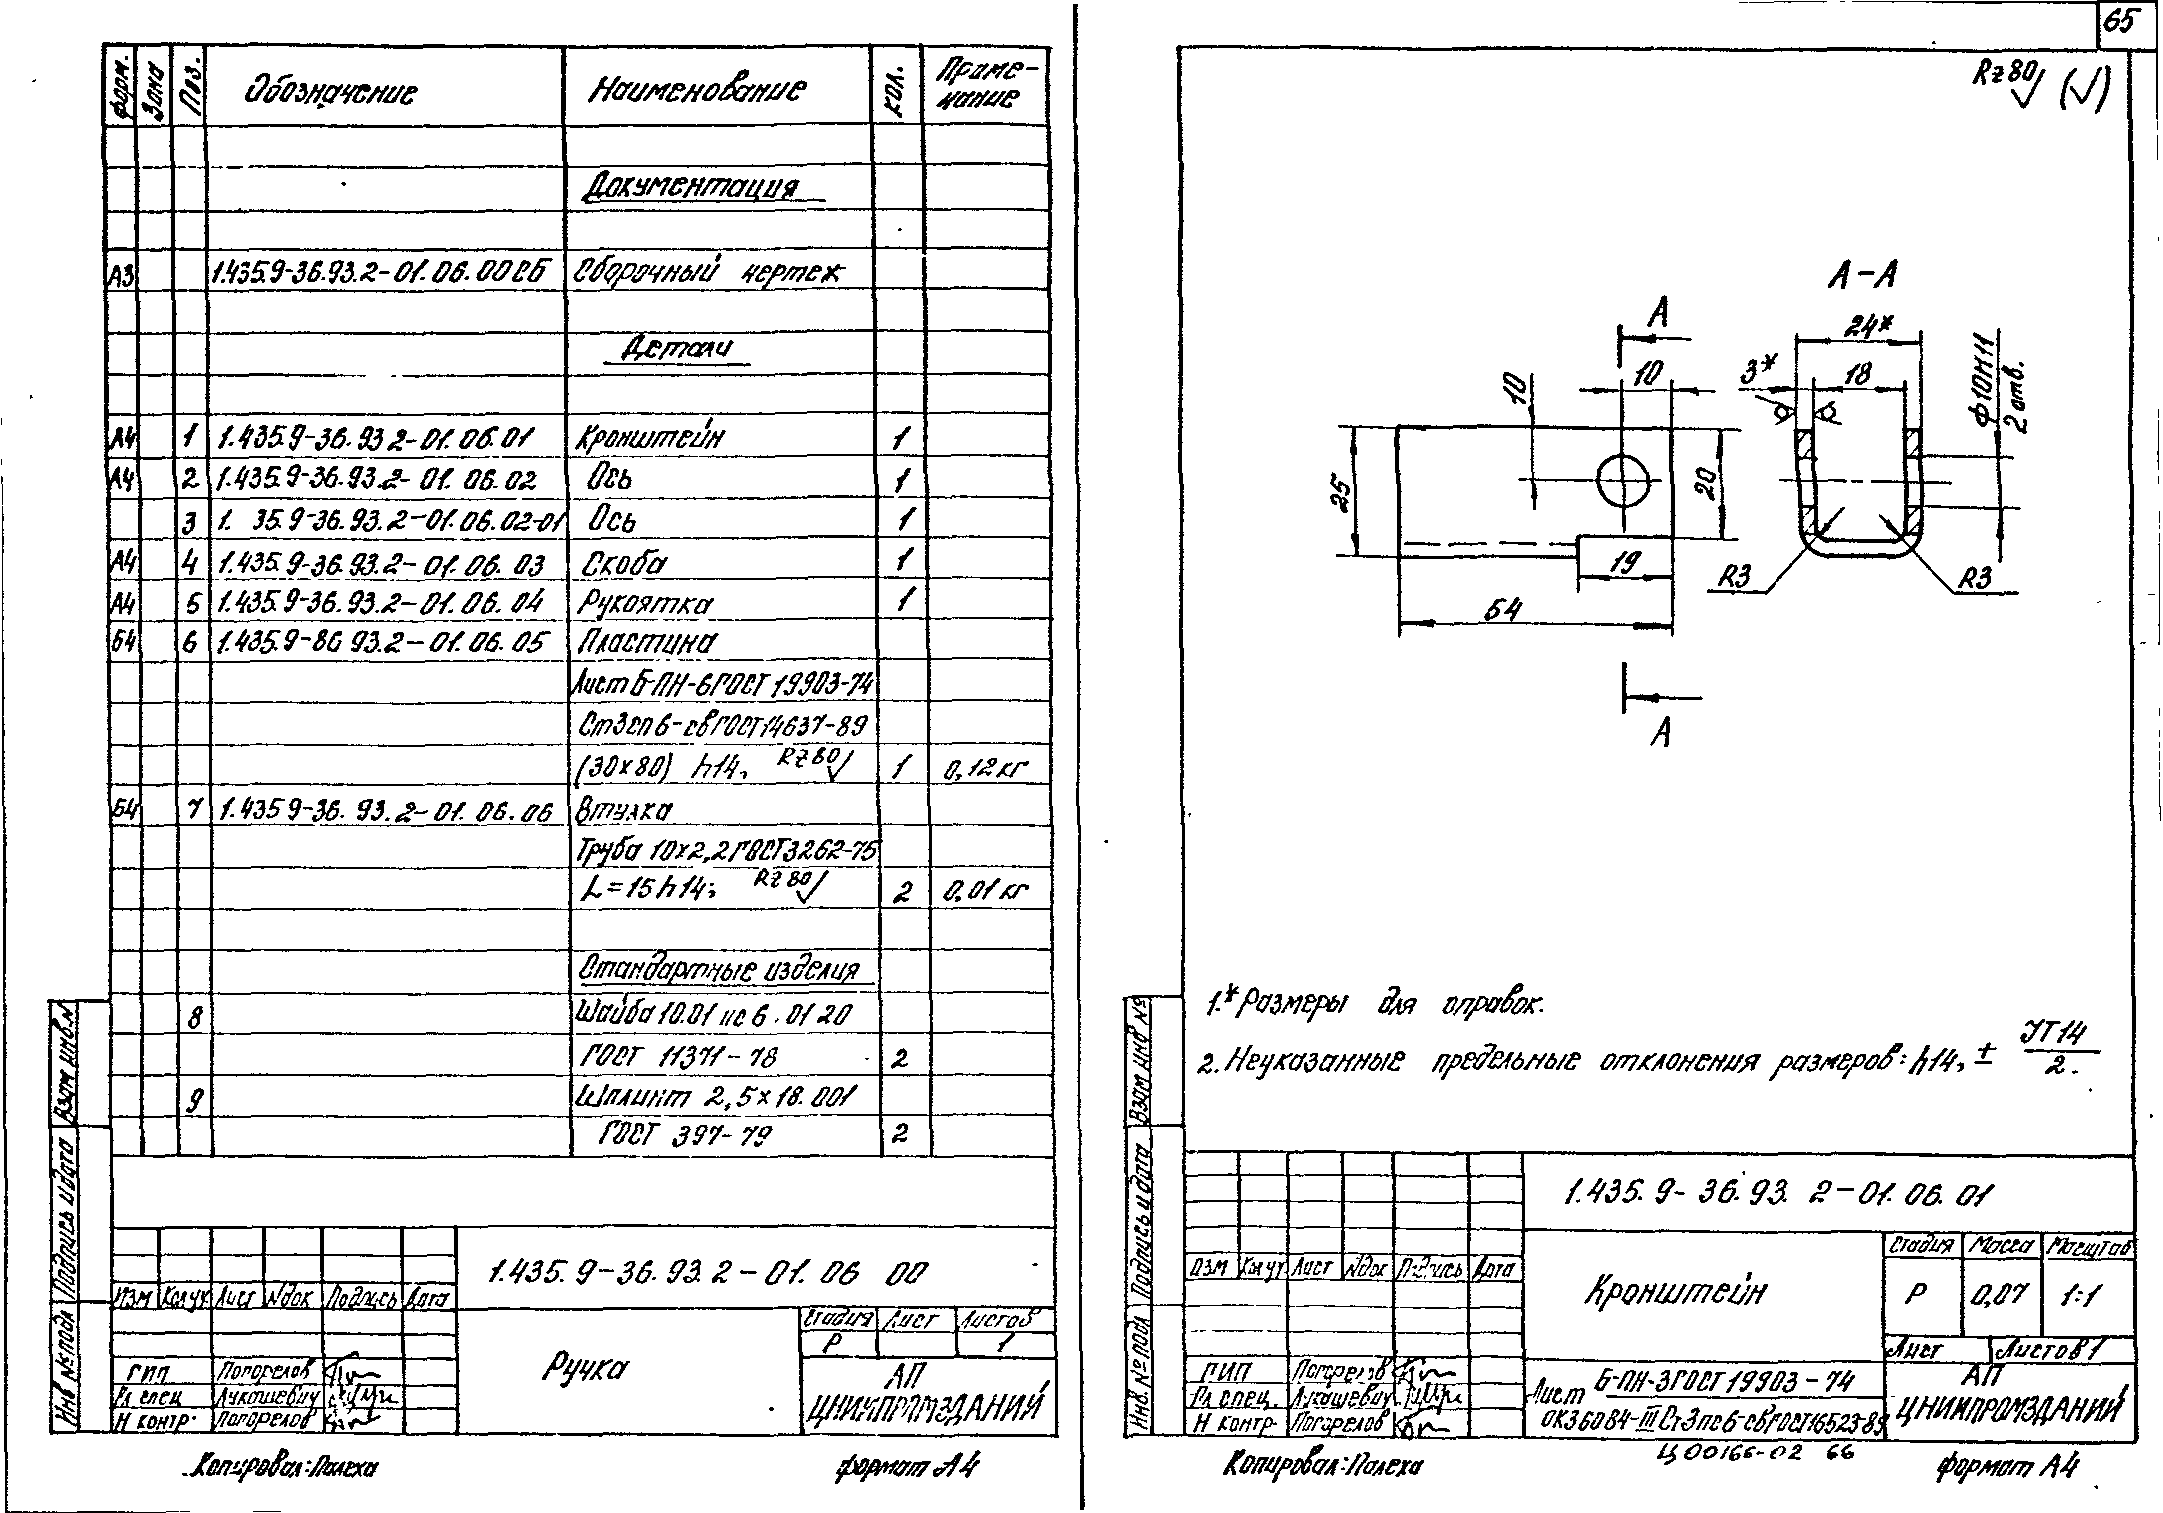 Форм. Зона Поз. Обозначение Наименование Кол. Приме-
чание
Документация
А3 1.435.9-36.93.2-01.06.00СБ Сборочный чертеж
Детали
А4 1 1.435.9-36.93 2-01.06.01 Кронштейн 1
А4 2 1.435.9-36.93.2-01.06.02 Ось 1
3 1. 35.9-36.93.2-01.06.02-01 Ось 1
А4 4 1.435.9-36.93.2-01.06.03 Скоба 1
А4 5 1.435.9-36.93.2-01.06.04 Рукоятка 1
Б4 6 1.435.9-86 93.2-01.06.05 Пластина
Лист Б-ПН-6 ГОСТ 19903-74
Ст3сп6-св ГОСТ 14637-89
(30×80) h14, Rz80 1 0,12 кг
Б4 7 1.435 9-36.93.2-01.06.06 Втулка
Труба 10×2,2 ГОСТ 3262-75
L=15 h14; Rz80 2 0,01 кг
Стандартные изделия
8 Шайба 10.01 пс 6.01 20
ГОСТ 11371-78 2
9 Шплинт 2,5×18.001
ГОСТ 397-79 2
1.435.9-36.93.2-01.06 00
Изм Кол.уч Лист Nдок Подпись Дата
Ручка
Стадия Лист Листов
Р 1
ГИП Погорелов
Гл спец Лукашевич
Н контр. Погорелов
АП
ЦНИИПРОМЗДАНИЙ
Взам инв.N
Подпись и дата
Инв № подл
Копировал: Палеха
формат А4
65
Rz80 (√)
А-А
А
24*
10
10
3*
18
ф10Н11
2 отв.
25
20
19
54
R3
R3
А
1.* Размеры для оправок.
2. Неуказанные предельные отклонения размеров: h14, ± УТ14
2.
Взам инв №
Подпись и дата
Инв. № подл
1.435.9-36.93.2-01.06.01
Изм Кол.уч Лист Nдок Подпись Дата
Кронштейн
Стадия Масса Масштаб
Р 0,07 1:1
Лист Листов 1
ГИП Погорелов
Гл спец. Лукашевич
Н контр Погорелов
Лист Б-ПН-3 ГОСТ 19903-74
ОК360 84-III Ст3пс6-св ГОСТ 16523-89
АП
ЦНИИПРОМЗДАНИЙ
Ц 00166-02 66
Копировал: Палеха
формат А4